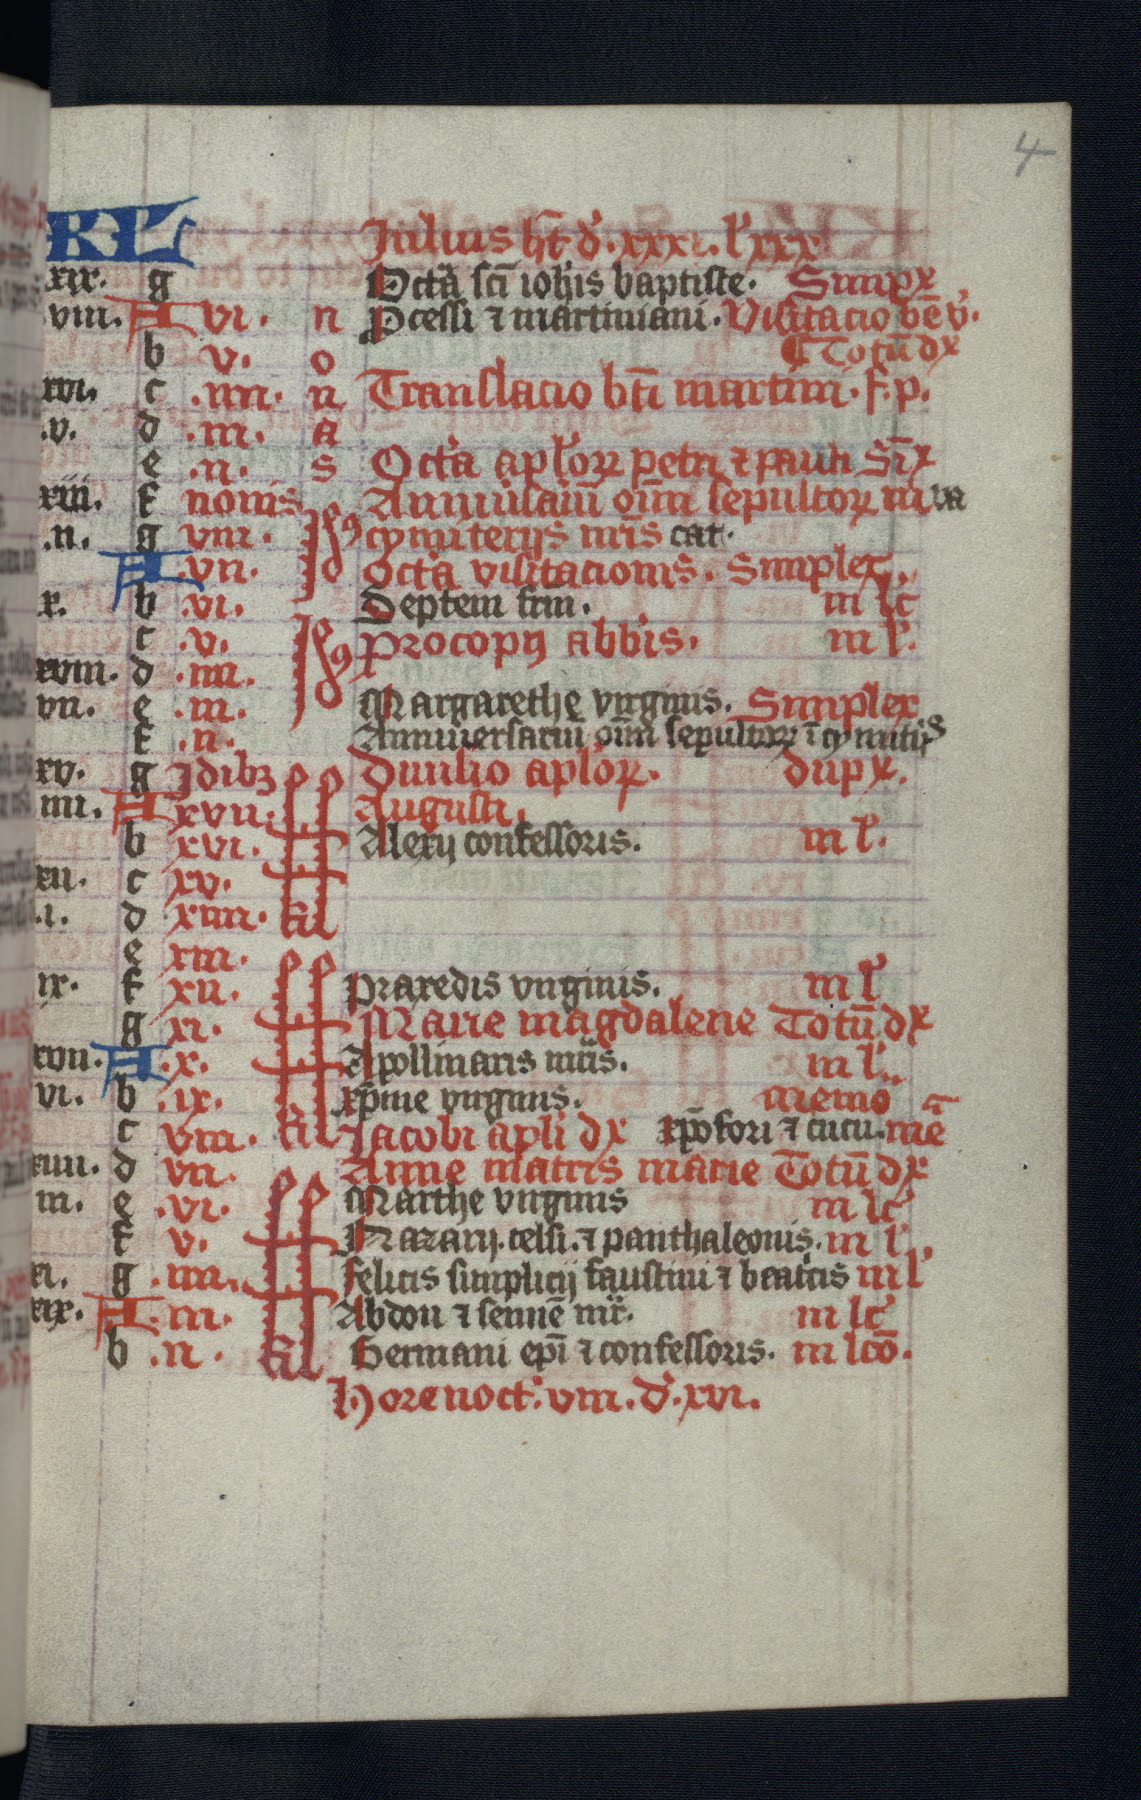 4
KL Julius h͞t d'. xxxi. l' xxx
xix. g Octa͞ sc͞i ioh͞is baptiste. Simpx
viii. A vi. n Pcessi ⁊ martiniani. Visitacio be͞ v'.
b v. o Totu͞ dx
xvi. c .iiii. n Translacio bt͞i martini. f. p.
.v. d .iii. a
e .ii. s Octa͞ apl'oꝝ petri ⁊ pauli Si͞x
xiii. f nonis Anniu'sariu͞ oi͞m sepultoꝝ in ba
.ii. g viii. Id9 cymiterijs nr͞is cat.
A .vii. Octa͞ visitacionis. Simplex.
x. b .vi. Septem frm. m lc
c .v. Id9 Procopij abb͞is. m l'.
xviii. d .iiii.
vii. e .iii. Margarethę virginis. Simplex
f .ii. Anniuersariu͞ oi͞m sepultoꝝ i͞ cymit'ijs
xv. g Idibꝫ Diuisio apl'oꝝ. dupx.
iiii. A xvii. Augusti.
b xvi. Alexij confessoris. m l'.
xii. c xv.
.i. d xiiii. kl
e xiii.
ix. f xii. Praxedis virginis. m l'
g xi. Marie magdalene Totu͞ dx
xvii. A .x. Apollinaris m͞ris. m l'.
vi. b .ix. xp͞ine virginis. memo͞
c viii. kl Jacobi apl'i dx xp͞ofori ⁊ cucu. me͞
xiiii. d vii. Anne matris marie Totu͞ dx
iii. e .vi. Marthe virginis m lc'
f v. Nazarij. celsi. ⁊ panthaleonis. m l'.
xi. g .iiii. Felicis simplicij faustini ⁊ beat'cis m l'
xix. A .iii. Abdon ⁊ senne͞ mr͞. m lc'
b .ii. kl Germani epi͞ ⁊ confessoris. m lco͞.
Hore noct'. viii. d'. xvi.